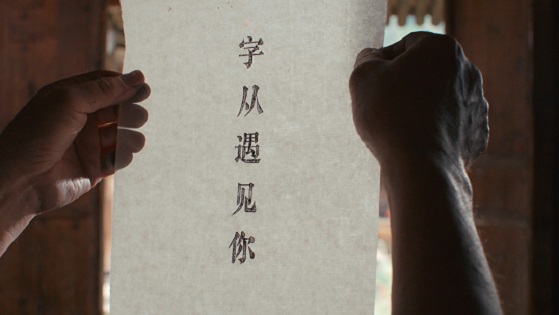 字从遇见你